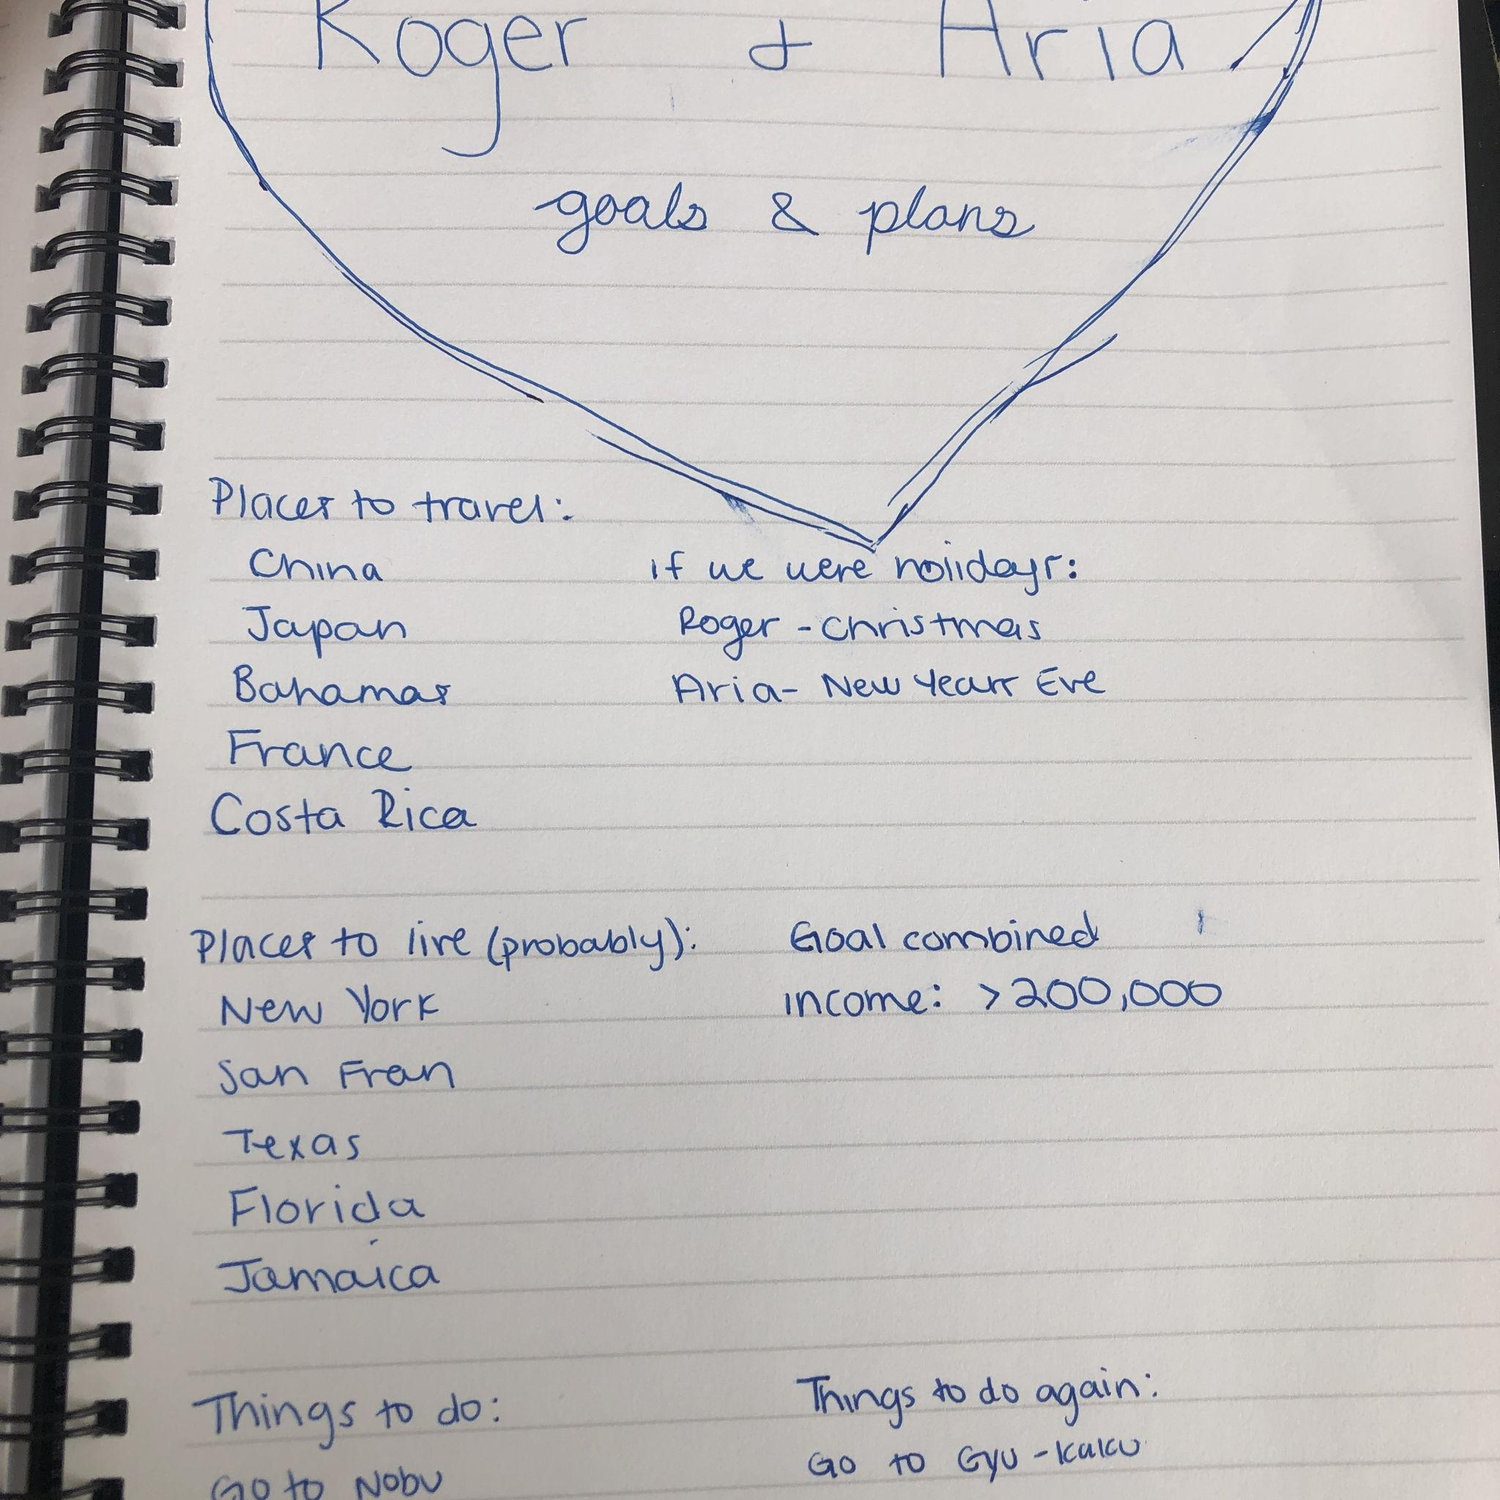 Roger & Aria
goals & plans
Places to travel:
China
Japan
Bahamas
France
Costa Rica
if we were holidays:
Roger - Christmas
Aria - New Years Eve
Places to live (probably):
New York
San Fran
Texas
Florida
Jamaica
Goal combined
income: >200,000
Things to do:
Go to Nobu
Things to do again:
Go to Gyu-kaku